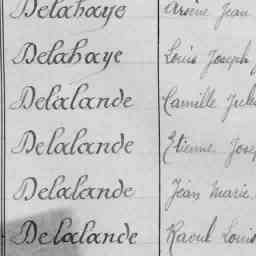 Delahaye Arsène Jean
Delahaye Louis Joseph
Delalande Camille Jules
Delalande Etienne Josep
Delalande Jean Marie
Delalande Raoul Louis